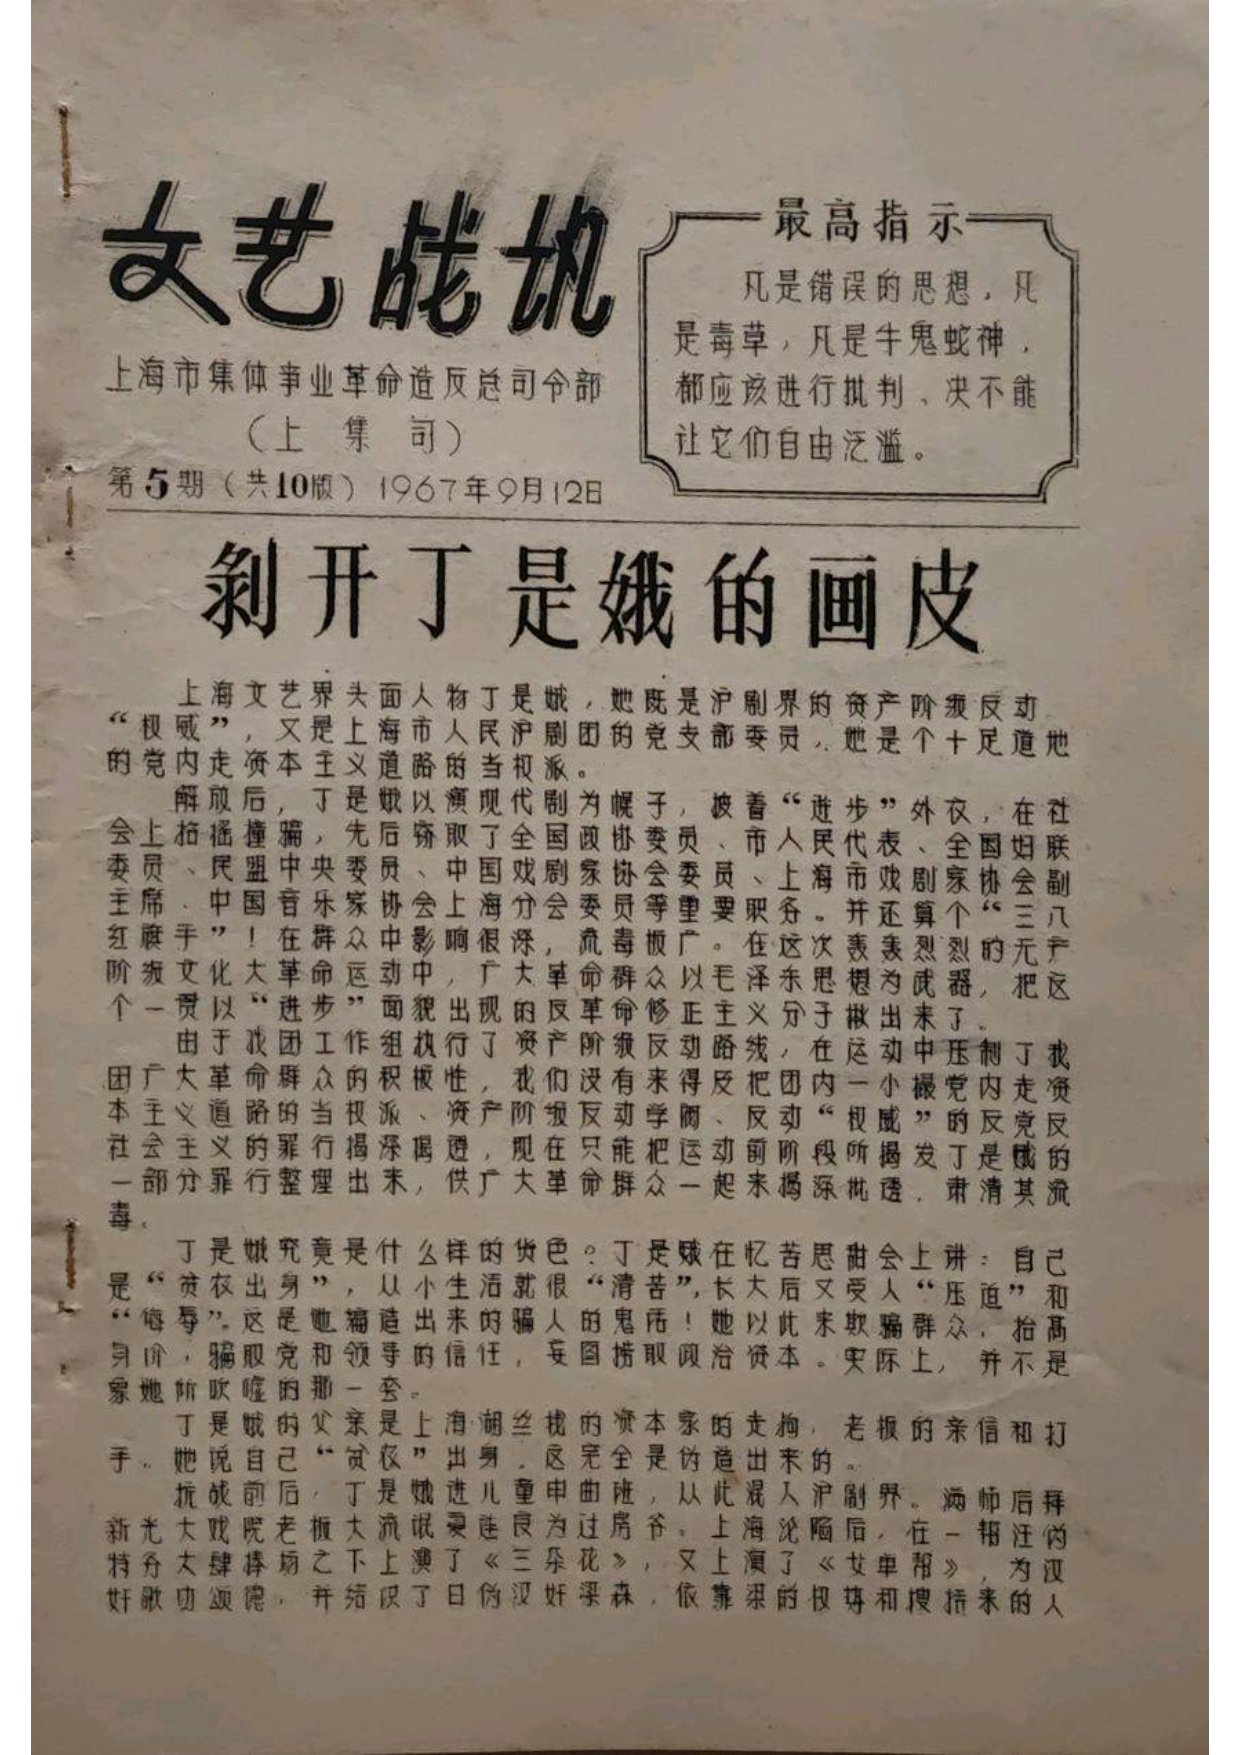 文艺战讯
上海市集体事业革命造反总司令部
（上集司）
第5期（共10版）1967年9月12日
最高指示
凡是错误的思想，凡
是毒草，凡是牛鬼蛇神，
都应该进行批判、决不能
让它们自由泛滥。
剥开丁是娥的画皮
上海文艺界头面人物丁是娥，她既是沪剧界的资产阶级反动
“权威”，又是上海市人民沪剧团的党支部委员，她是个十足道地
的党内走资本主义道路的当权派。
解放后，丁是娥以演现代剧为幌子，披着“进步”外衣，在社
会上招摇撞骗，先后窃取了全国政协委员、市人民代表、全国妇联
委员、民盟中央委员、中国戏剧家协会委员、上海市戏剧家协会副
主席、中国音乐家协会上海分会委员等重要职务。并还算个“三八
红旗手”！在群众中影响很深，流毒极广。在这次轰轰烈烈的无产
阶级文化大革命运动中，广大革命群众以毛泽东思想为武器，把这
个一贯以“进步”面貌出现的反革命修正主义分子揪出来了。
由于我团工作组执行了资产阶级反动路线，在运动中压制了我
团广大革命群众的积极性，我们没有来得及把团内一小撮党内走资
本主义道路的当权派、资产阶级反动学阀、反动“权威”的反党反
社会主义的罪行揭深揭透，现在只能把运动前阶段所揭发丁是娥的
一部分罪行整理出来，供广大革命群众一起来揭深批透，肃清其流
毒。
丁是娥究竟是什么样的货色？丁是娥在忆苦思甜会上讲：自己
是“贫农出身”，从小生活就很“清苦”，长大后又受人“压迫”和
“侮辱”。这是她编造出来的骗人的鬼话！她以此来欺骗群众，抬高
身价，骗取党和领导的信任，妄图捞取政治资本。实际上，并不是
象她所吹嘘的那一套。
丁是娥的父亲是上海湖丝栈的资本家的走狗，老板的亲信和打
手。她说自己“贫农”出身，这完全是伪造出来的。
抗战前后，丁是娥进儿童申曲班，从此混入沪剧界。满师后拜
新光大戏院老板大流氓夏连良为过房爷。上海沦陷后，在一帮汪伪
特务大肆捧场之下上演了《三朵花》，又上演了《女单帮》，为汉
奸歌功颂德，并结识了日伪汉奸梁森，依靠梁的权势和搜括来的人